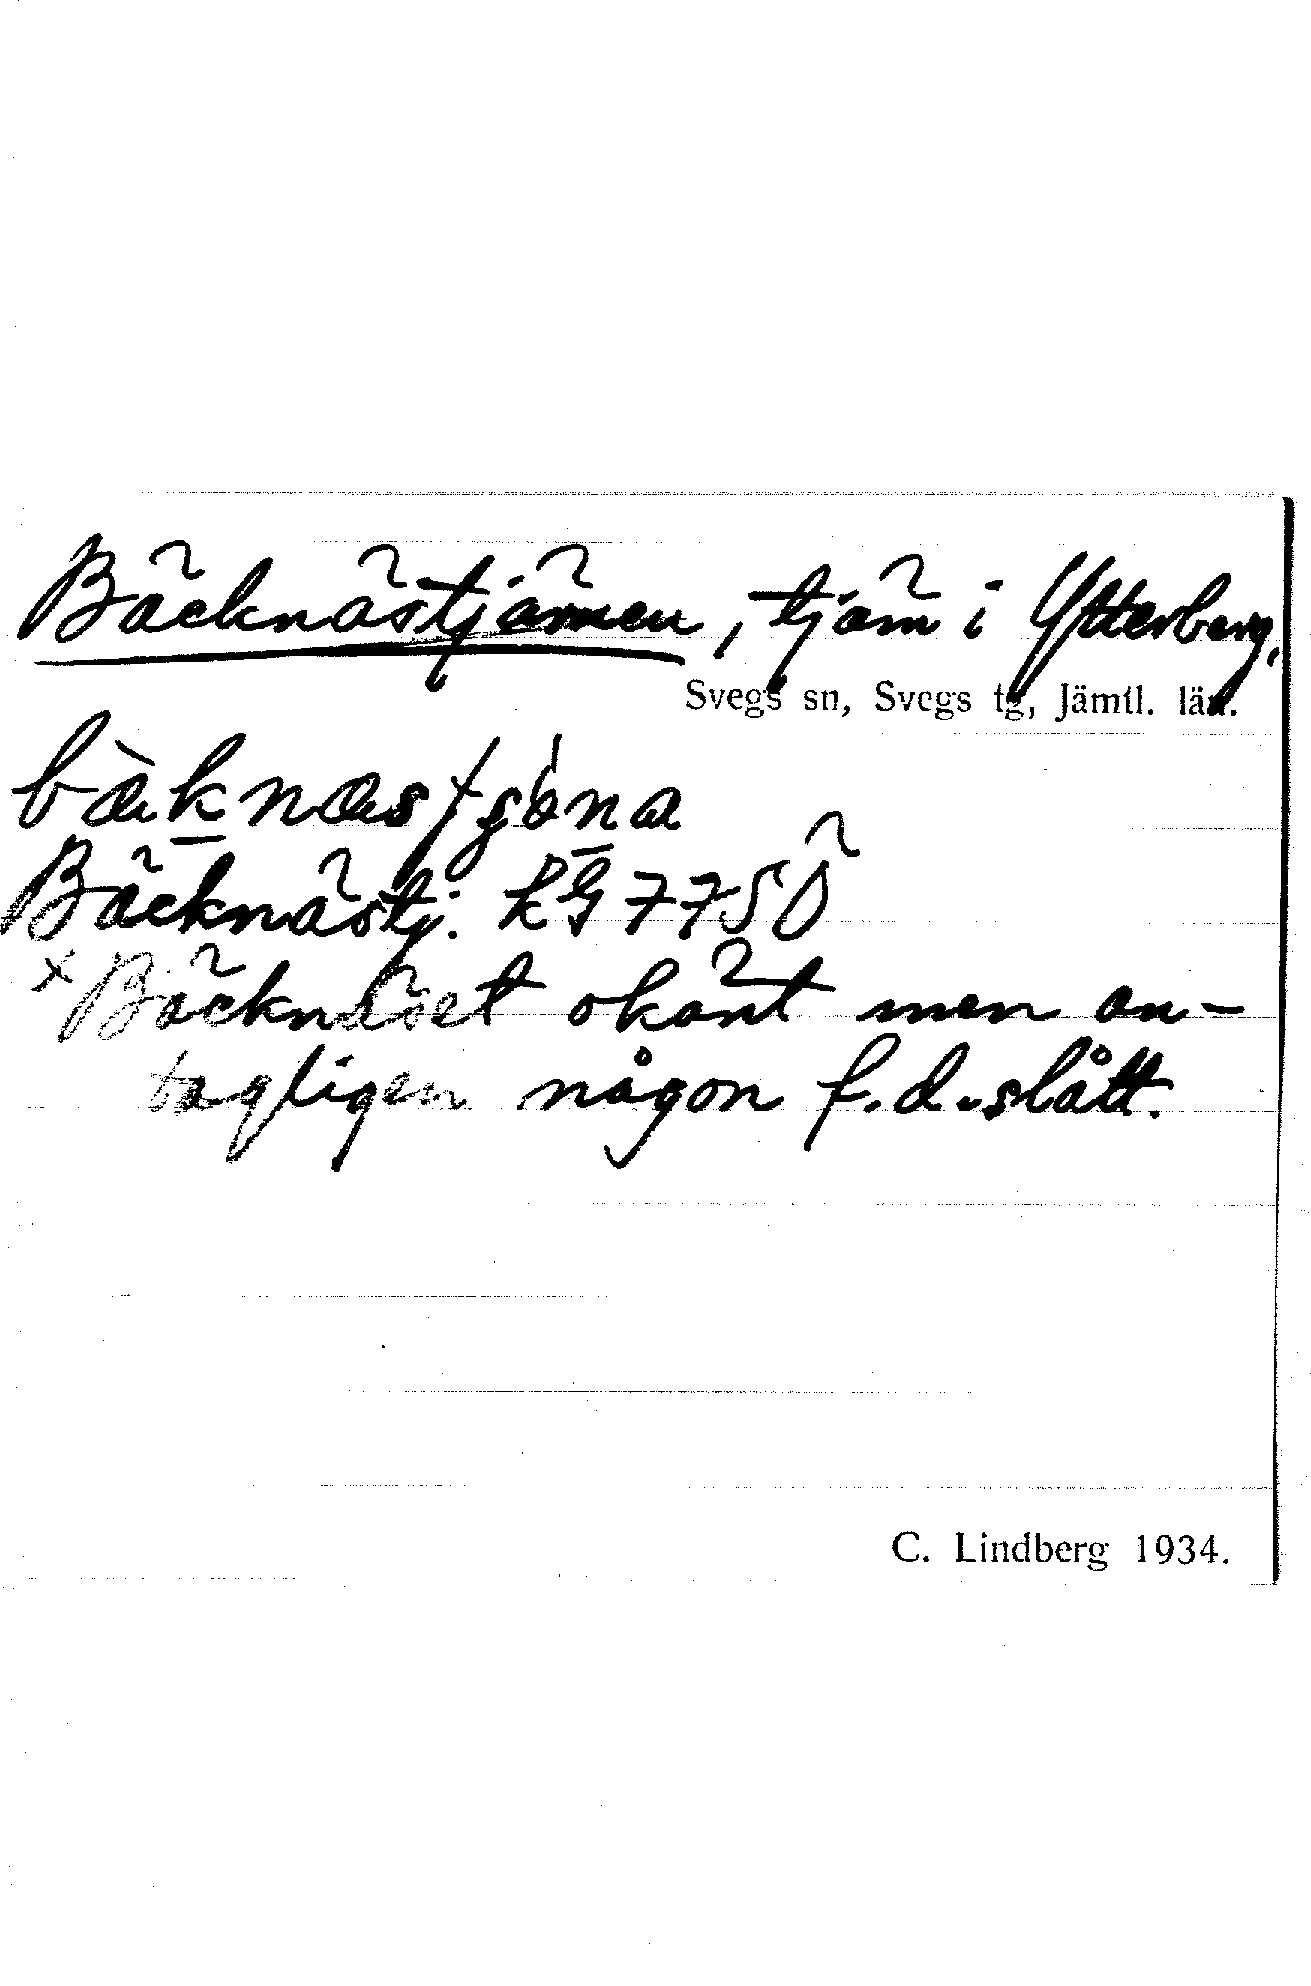 Bäcknästjärnen, tjärn i Ytterberg,
Svegs sn, Svegs tg, Jämtl. län.
Bäcknästj. kG 7750
x Bäcknäset okänt men an-
tagligen någon f.d. slått.
C. Lindberg 1934.